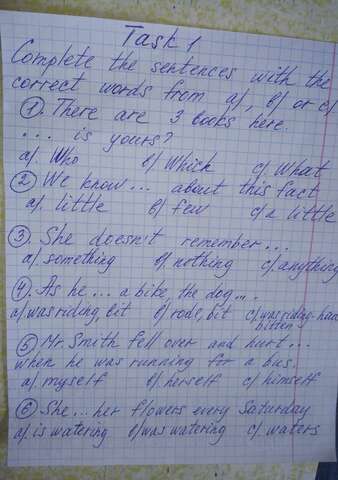 Task 1
Complete the sentences with the
correct words from a), b) or c)
① There are 3 books here.
... is yours?
a). Who b) Which c). What
② We know... about this fact
a). little b) few c) a little
③ She doesn't remember...
a) something b) nothing c) anything
④ As he... a bike, the dog...
a) was riding, bit b) rode, bit c) was riding-had
bitten
⑤ Mr. Smith fell over and hurt...
when he was running for a bus.
a) myself b) herself c) himself
⑥ She... her flowers every Saturday
a). is watering b) was watering c). waters